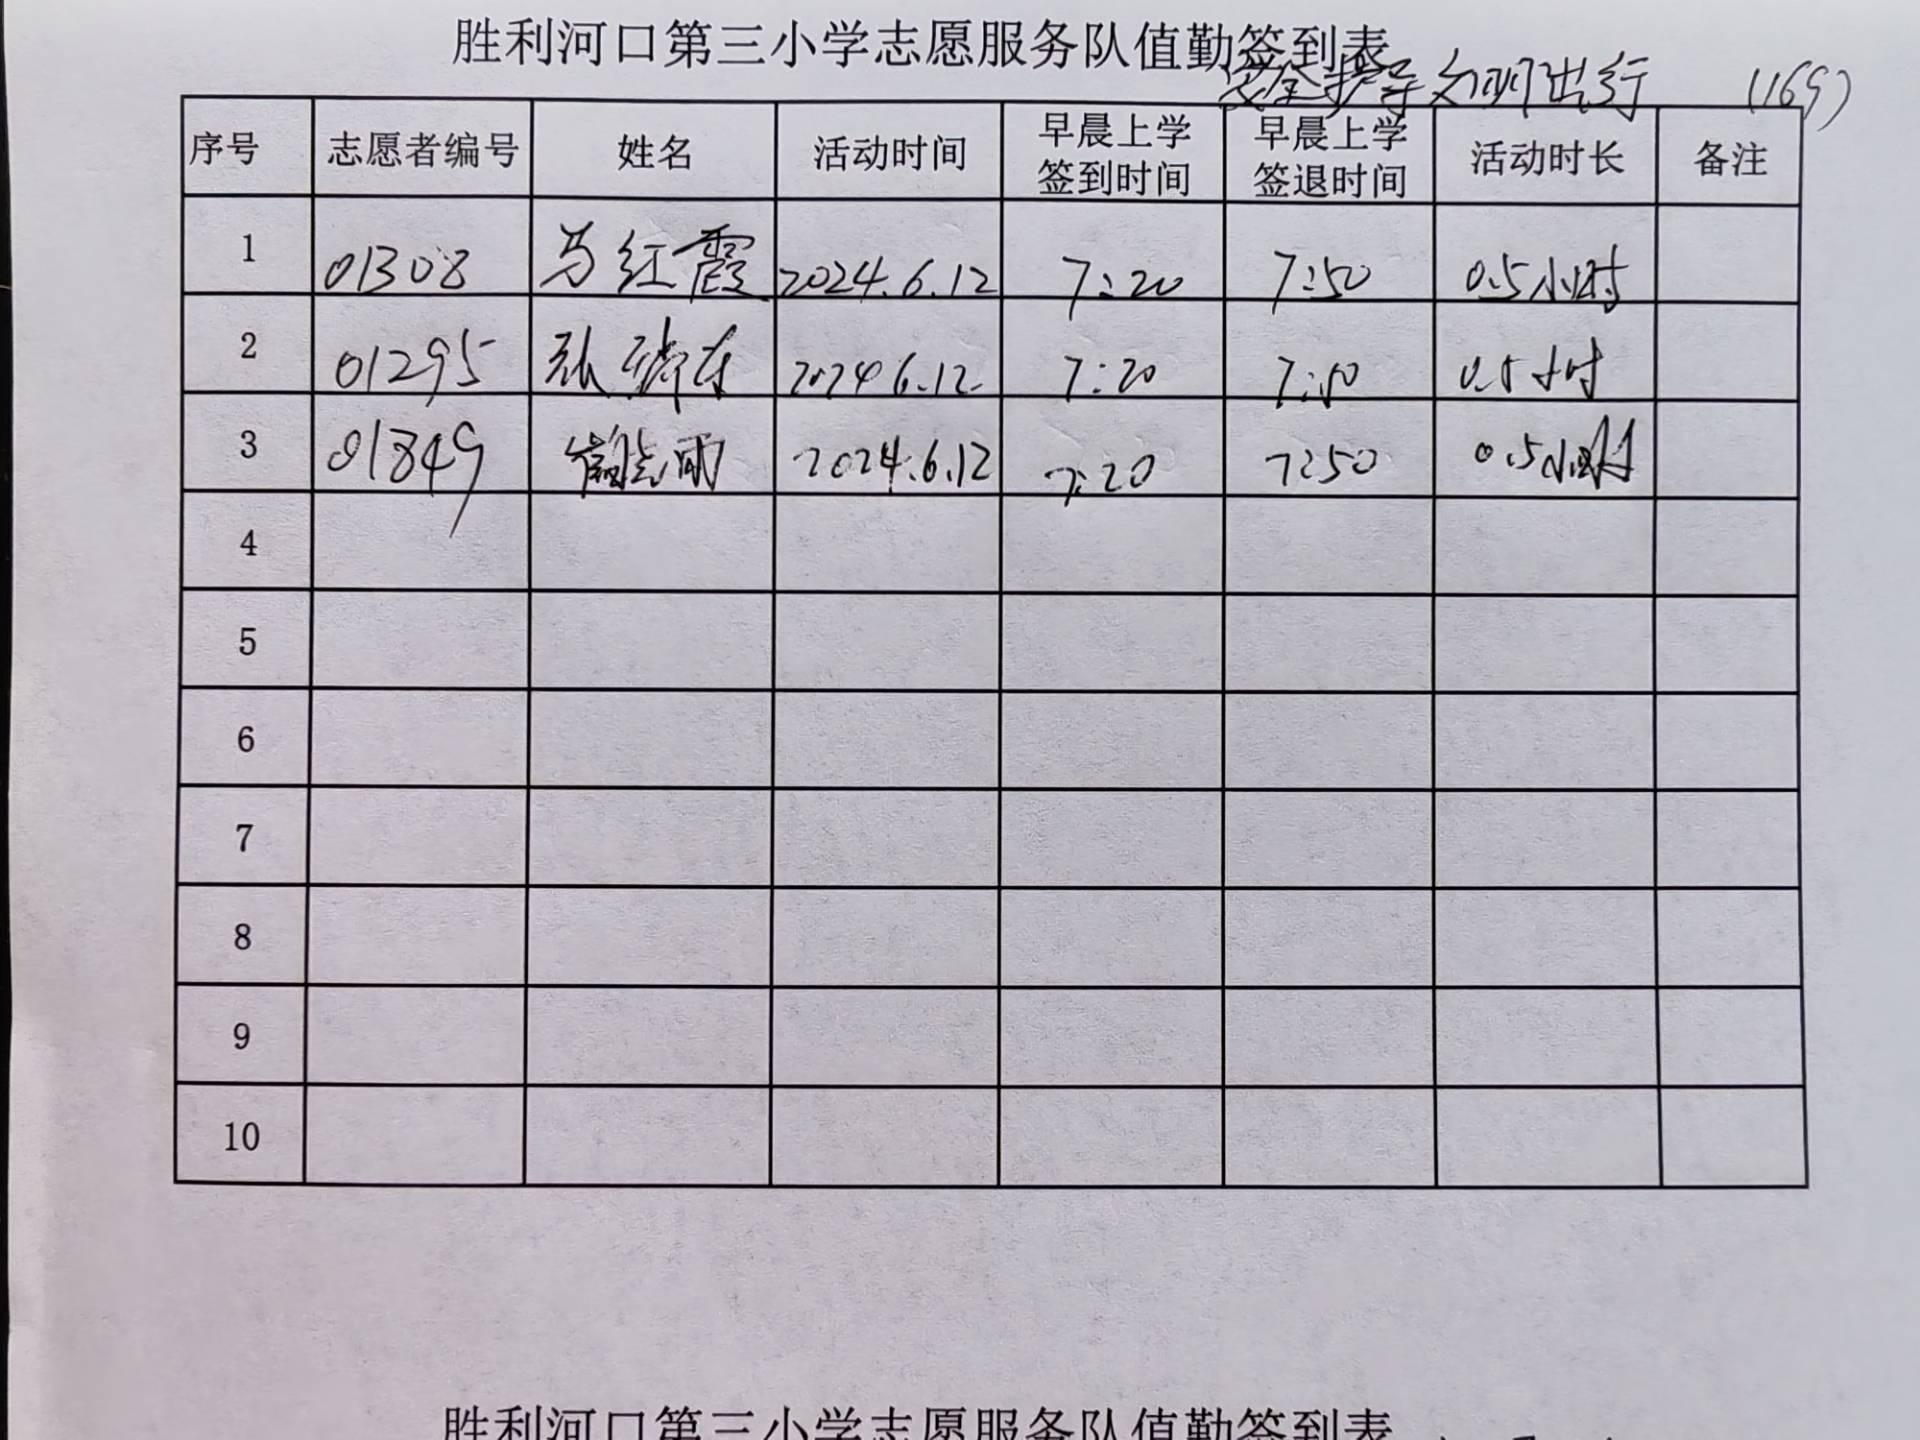 胜利河口第三小学志愿服务队值勤签到表
安全护导文明出行 (169)
序号 志愿者编号 姓名 活动时间 早晨上学签到时间 早晨上学签退时间 活动时长 备注
1 01308 马红霞 2024.6.12 7:20 7:50 0.5小时
2 01295 张 2024.6.12 7:20 7:50 0.5小时
3 01849 雨 2024.6.12 7:20 7:50 0.5小时
4
5
6
7
8
9
10
胜利河口第三小学志愿服务队值勤签到表